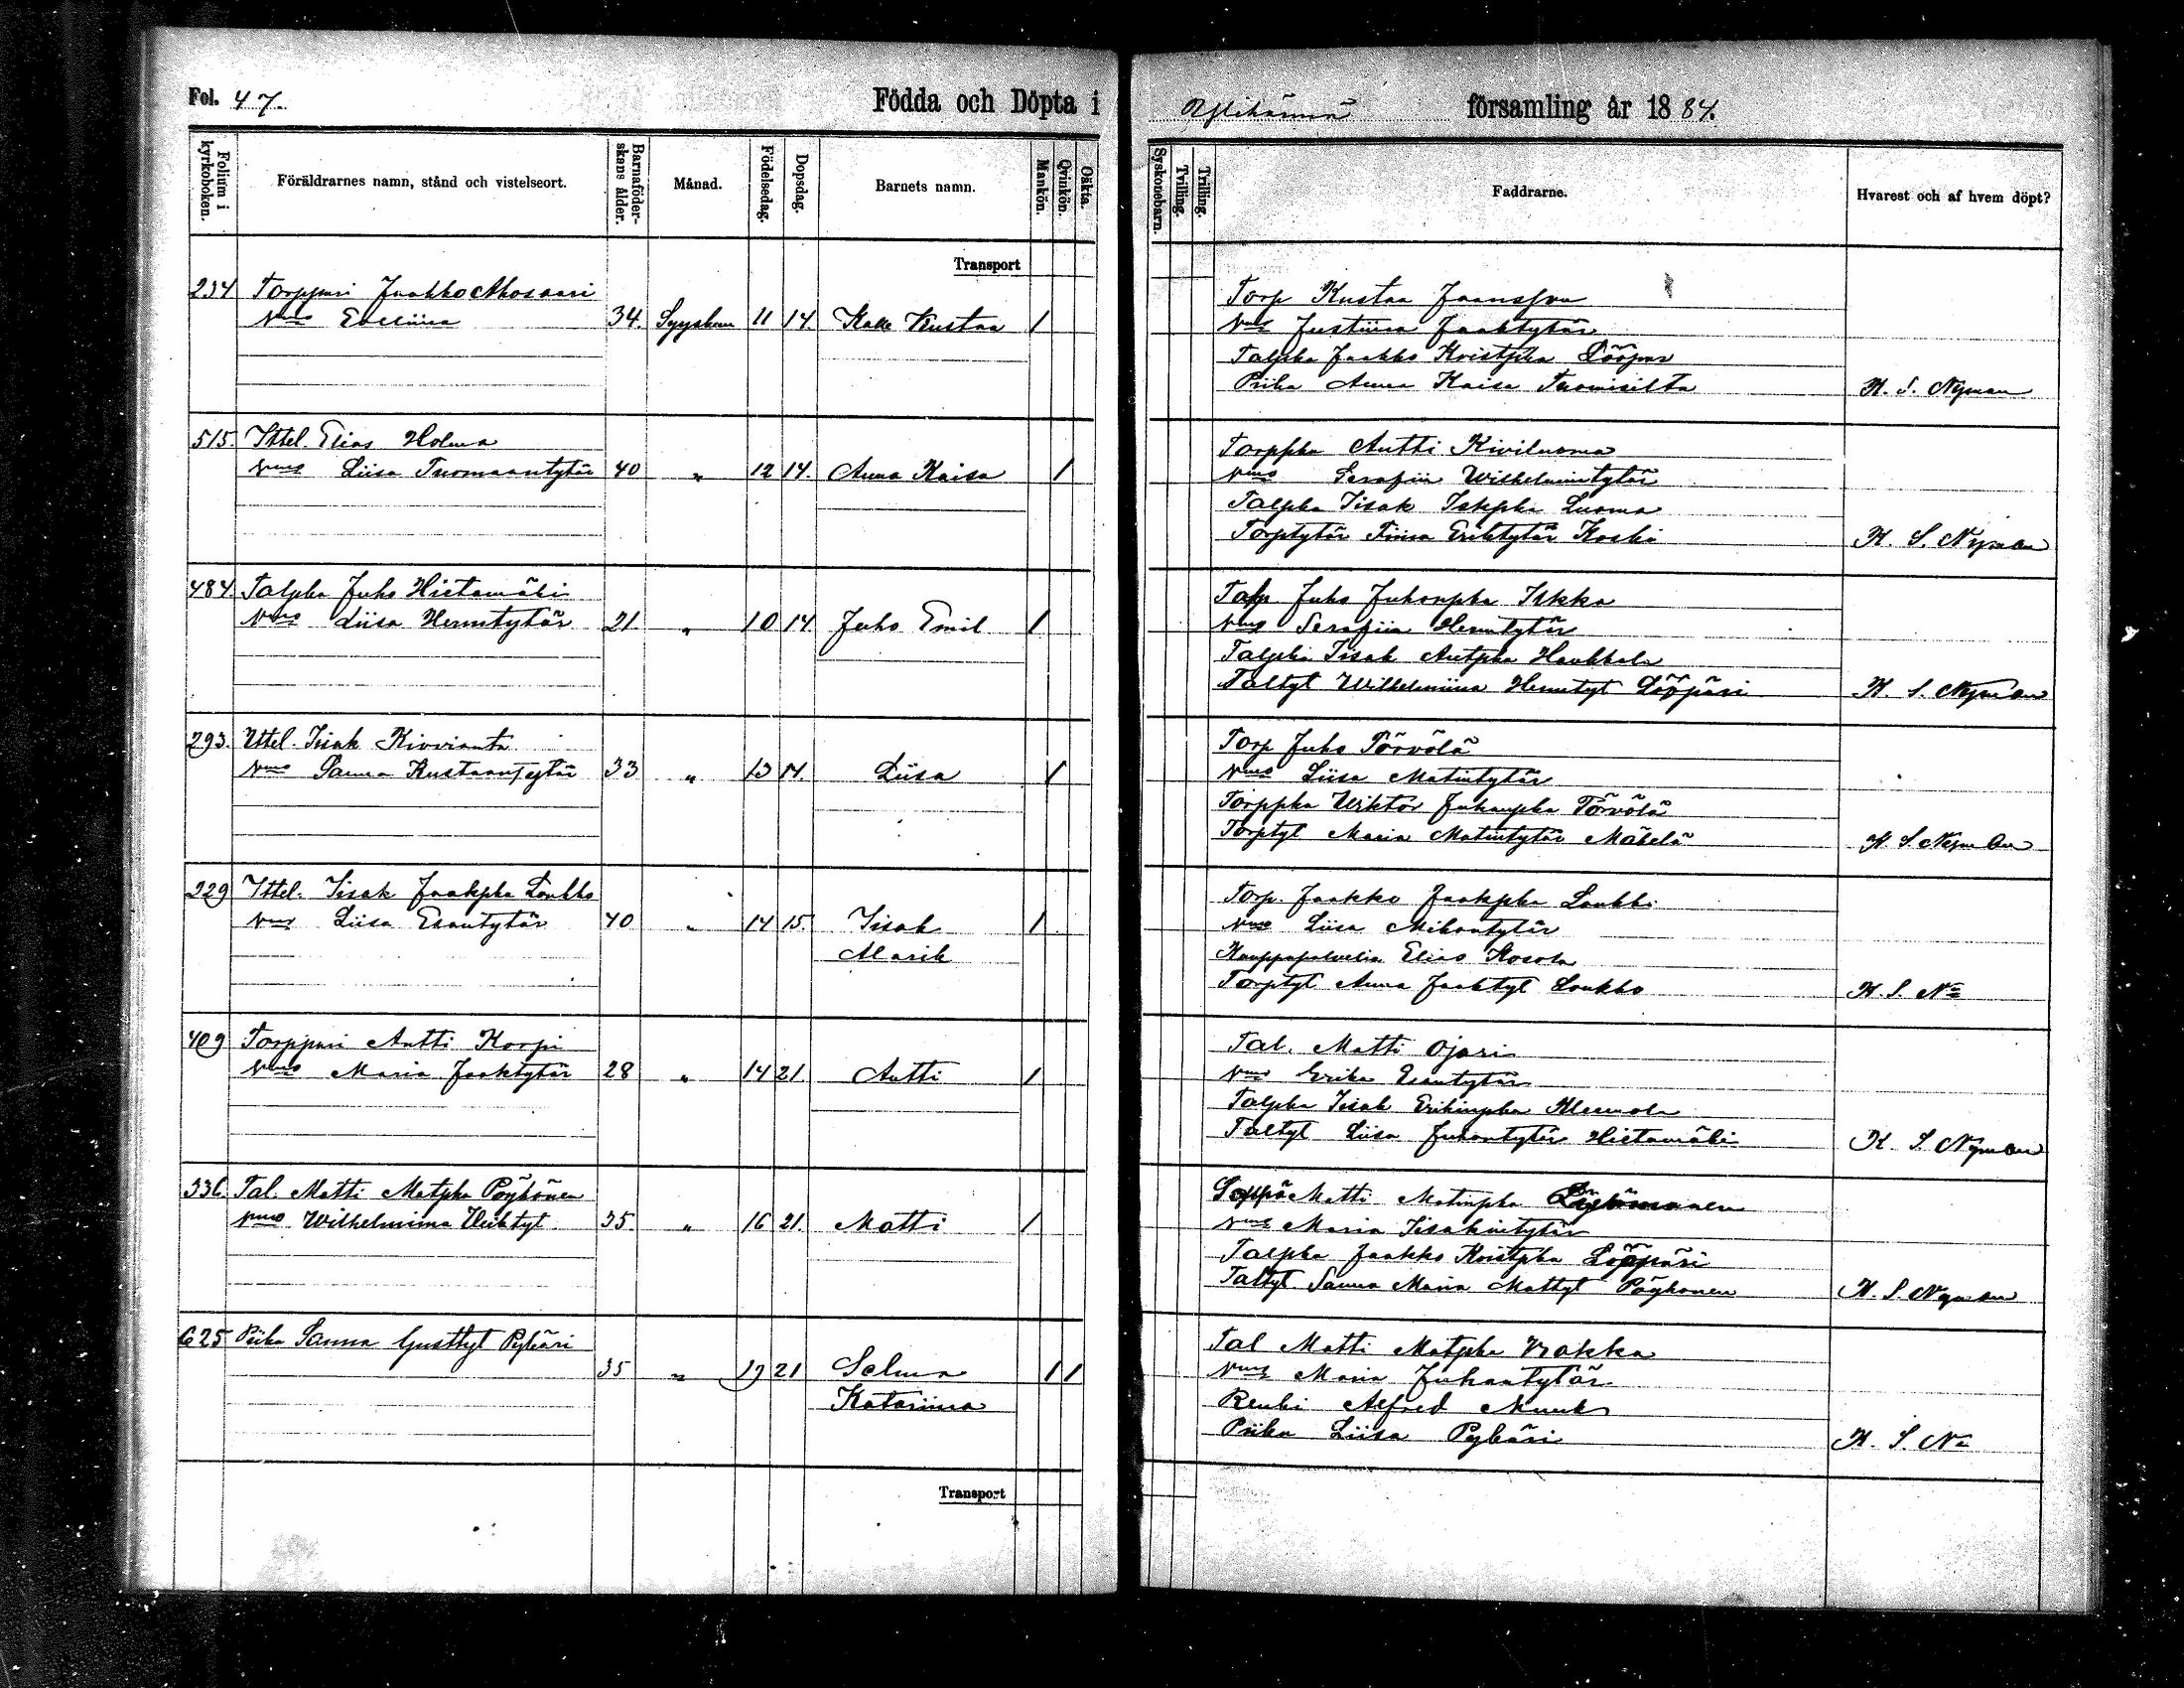 Fol. 47.
Födda och Döpta i
församling år 1884.
Folium i kyrkoboken.
Föräldrarnes namn, stånd och vistelseort.
Barnaföderskans ålder.
Månad.
Födelsedag.
Dopsdag.
Barnets namn.
Mankön.
Qvinkön.
Oäkta.
Syskonebarn.
Tvilling.
Trilling.
Faddrarne.
Hvarest och af hvem döpt?
Transport
234 Torppari Jaakko
Vmo Eveliina 34. Syyskuu 11 14. Kalle Kustaa 1
Torp Kustaa
Vmo Justiina Jaaktytär
Talpka Jaakko Kristpka
Piika Anna Kaisa Tuomisilta K. S. Nyman
515. Ittel. Elias Holma
Vmo Liisa Tuomaantytär 40 " 12 14. Anna Kaisa 1
Torppka Antti Kiviluoma
Vmo Serafiia Wilhelmintytär
Talpka Iisak Iskpka Luoma
Torptytär Fiina Eriktytär Koski K. S. Nyman
484. Talpka Juho Hietamäki
Vmo Liisa Hermtytär 21. " 10 14 Juho Emil 1
Talp. Juho Juhonpka Ikka
Vmo Serafiia Hermtytär
Talpka Iisak Antpka Haukkala
Taltyt Wilhelmiina Hermtyt Lööpäri K. S. Nyman
293. Ittel. Iisak Kiviranta
Vmo Sanna Kustaantytär 33 " 13 14. Liisa 1
Torp Juho Törvölä
Vmo Liisa Matintytär
Torppka Wiktor Juhanpka Törvölä
Torptyt Maria Matintytär Mäkelä K. S. Nyman
229 Ittel. Iisak Jaakpka Loukko
Vmo Liisa Esantytär 40 " 14 15. Iisak 1
Torp. Jaakko Jaakpka Loukko
Vmo Liisa Mikontytär
Kauppapalvelia Elias Kosola
Torptyt Anna Jaaktyt Loukko K. S. Nn
409 Torppari Antti Korpi
Vmo Maria Jaaktytär 28 " 14 21. Antti 1
Tal. Matti Ojari
Vmo Erika Esantytär
Talpka Iisak Erikinpka Kleemola
Taltyt Liisa Juhantytär Hietamäki K. S. Nyman
336. Tal. Matti Matpka Pöyhönen
Vmo Wilhelmiina Heiktyt 35. " 16 21. Matti 1
Seppä Matti Matinpka
Vmo Maria Iisakintytär
Talpka Jaakko Kristpka Lööpäri
Taltyt Sanna Maria Mattyt Pöyhönen K. S. Nyman
625 Piika Sanna Gusttyt Pyhäri
35 " 19 21 Selma 1 1
Katariina
Tal Matti Matpka Vrakka
Vmo Maria Juhantytär
Renki Alfred Munk
Piika Liisa Pyhäri K. S. Nn
Transport